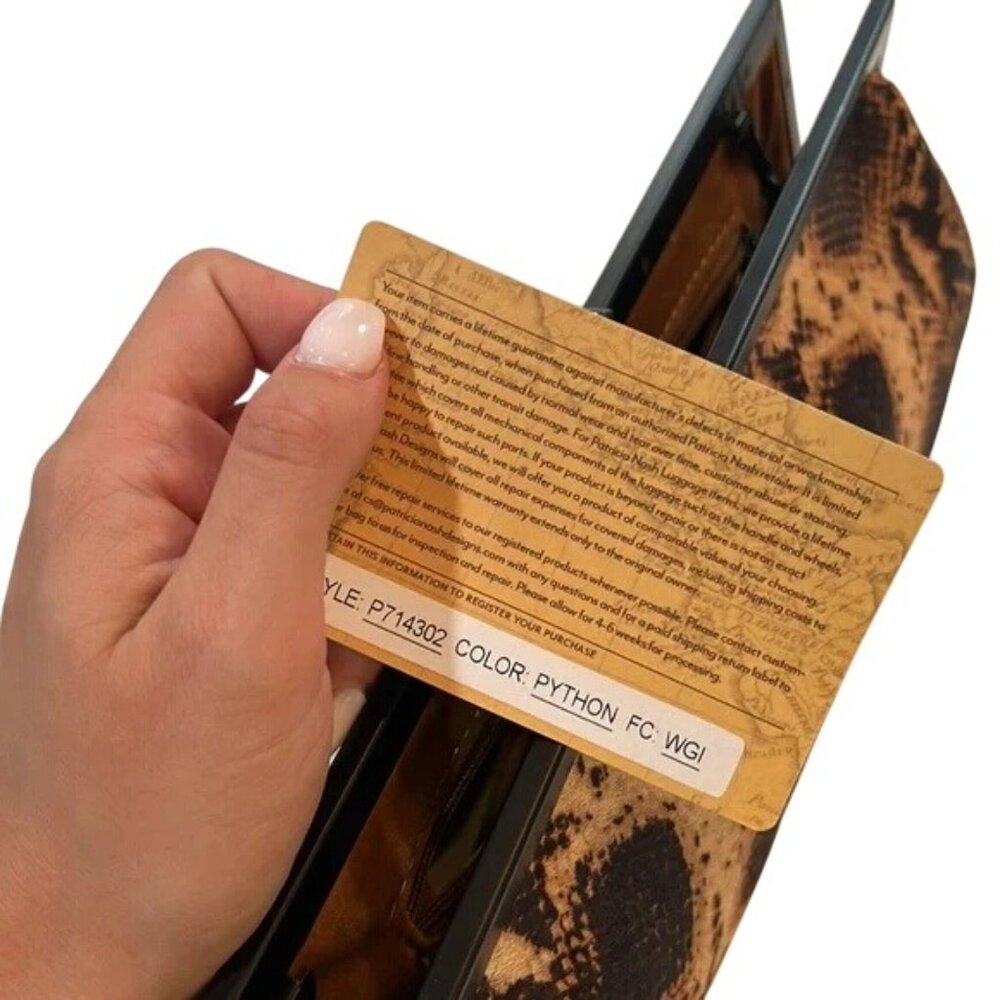 Your item carries a lifetime guarantee against manufacturer's defects in material or workmanship
from the date of purchase, when purchased from an authorized Patricia Nash retailer. It is limited
to damages not caused by normal wear and tear over time, customer abuse or staining,
handling or other transit damage. For Patricia Nash Luggage items, we provide a lifetime
which covers all mechanical components of the luggage such as the handle and wheels.
be happy to repair such parts. If your product is beyond repair or there is not an exact
product available, we will offer you a product of comparable value of your choosing.
ash Designs will cover all repair expenses for covered damages, including shipping costs to
us. This limited lifetime warranty extends only to the original owner.
er free repair services to our registered products whenever possible. Please contact custom-
at cs@patricianashdesigns.com with any questions and for a paid shipping return label to
bag to us for inspection and repair. Please allow for 4-6 weeks for processing.
TAIN THIS INFORMATION TO REGISTER YOUR PURCHASE
YLE: P714302 COLOR: PYTHON FC: WGI